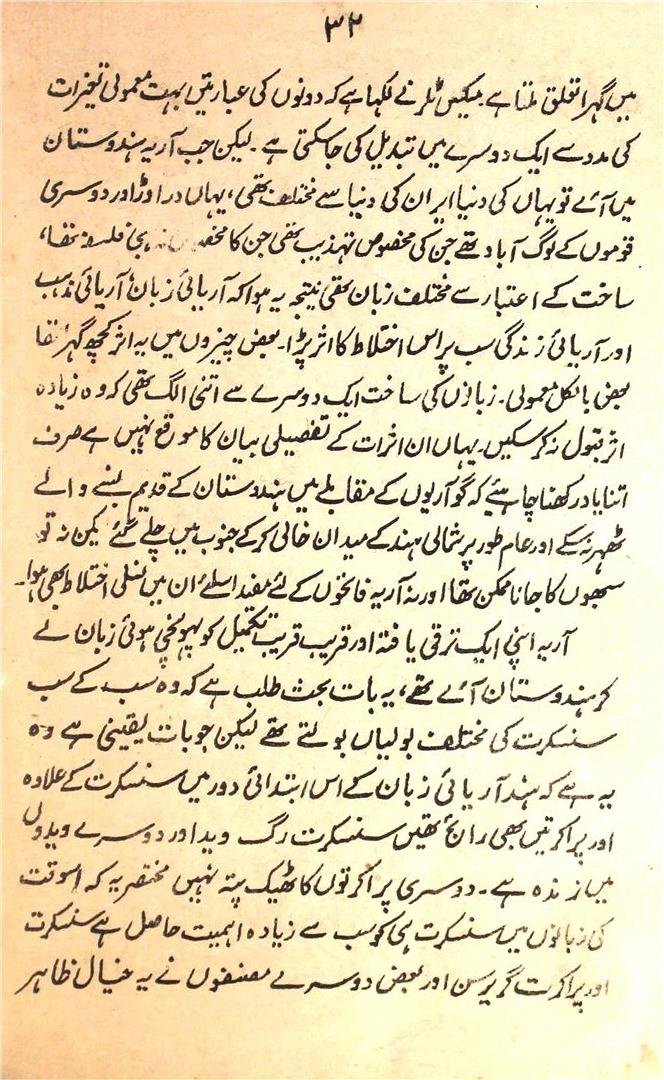 ۳۲
میں گہرا تعلق ملتا ہے۔ میکس ملر نے لکھا ہے کہ دونوں کی عبارتیں بہت معمولی تغیرات
کی مدد سے ایک دوسرے میں تبدیل کی جاسکتی ہے۔ لیکن جب آریہ ہندوستان
میں آئے تو یہاں کی دنیا ایران کی دنیا سے مختلف تھی، یہاں دراوڑ اور دوسری
قوموں کے لوگ آباد تھے جن کی مخصوص تہذیب تھی جن کا مخصوص فلسفہ تھا،
ساخت کے اعتبار سے مختلف زبان تھی نتیجہ یہ ہوا کہ آریائی زبان، آریائی مذہب
اور آریائی زندگی سب پر اس اختلاط کا اثر پڑا۔ بعض چیزوں میں یہ اثر کچھ گہرا تھا
بعض بالکل معمولی۔ زبانوں کی ساخت ایک دوسرے سے اتنی الگ تھی کہ وہ زیادہ
اثر قبول نہ کرسکیں۔ یہاں ان اثرات کے تفصیلی بیان کا موقع نہیں ہے صرف
اتنا یاد رکھنا چاہیئے کہ گو آریوں کے مقابلے میں ہندوستان کے قدیم بسنے والے
ٹھہر نہ سکے اور عام طور پر شمالی ہند کے میدان خالی کرکے جنوب میں چلے گئے لیکن نہ تو
سبھوں کا جانا ممکن تھا اور نہ آریہ فاتحوں کے لئے مفید اسلئے ان میں نسلی اختلاط بھی ہوا۔
آریہ اپنی ایک ترقی یافتہ اور قریب قریب تکمیل کو پہونچی ہوئی زبان لے
کر ہندوستان آئے تھے، یہ بات بحث طلب ہے کہ وہ سب کے سب
سنسکرت کی مختلف بولیاں بولتے تھے لیکن جو بات یقینی ہے وہ
یہ ہے کہ ہند آریائی زبان کے اس ابتدائی دور میں سنسکرت کے علاوہ
اور پراکرتیں بھی رائج تھیں سنسکرت رگ وید اور دوسرے ویدوں
میں زندہ ہے۔ دوسری پراکرتوں کا ٹھیک پتہ نہیں مختصر یہ کہ اسوقت
کی زبانوں میں سنسکرت ہی کو سب سے زیادہ اہمیت حاصل ہے سنسکرت
اور پراکرت گریرسن اور بعض دوسرے مصنفوں نے یہ خیال ظاہر